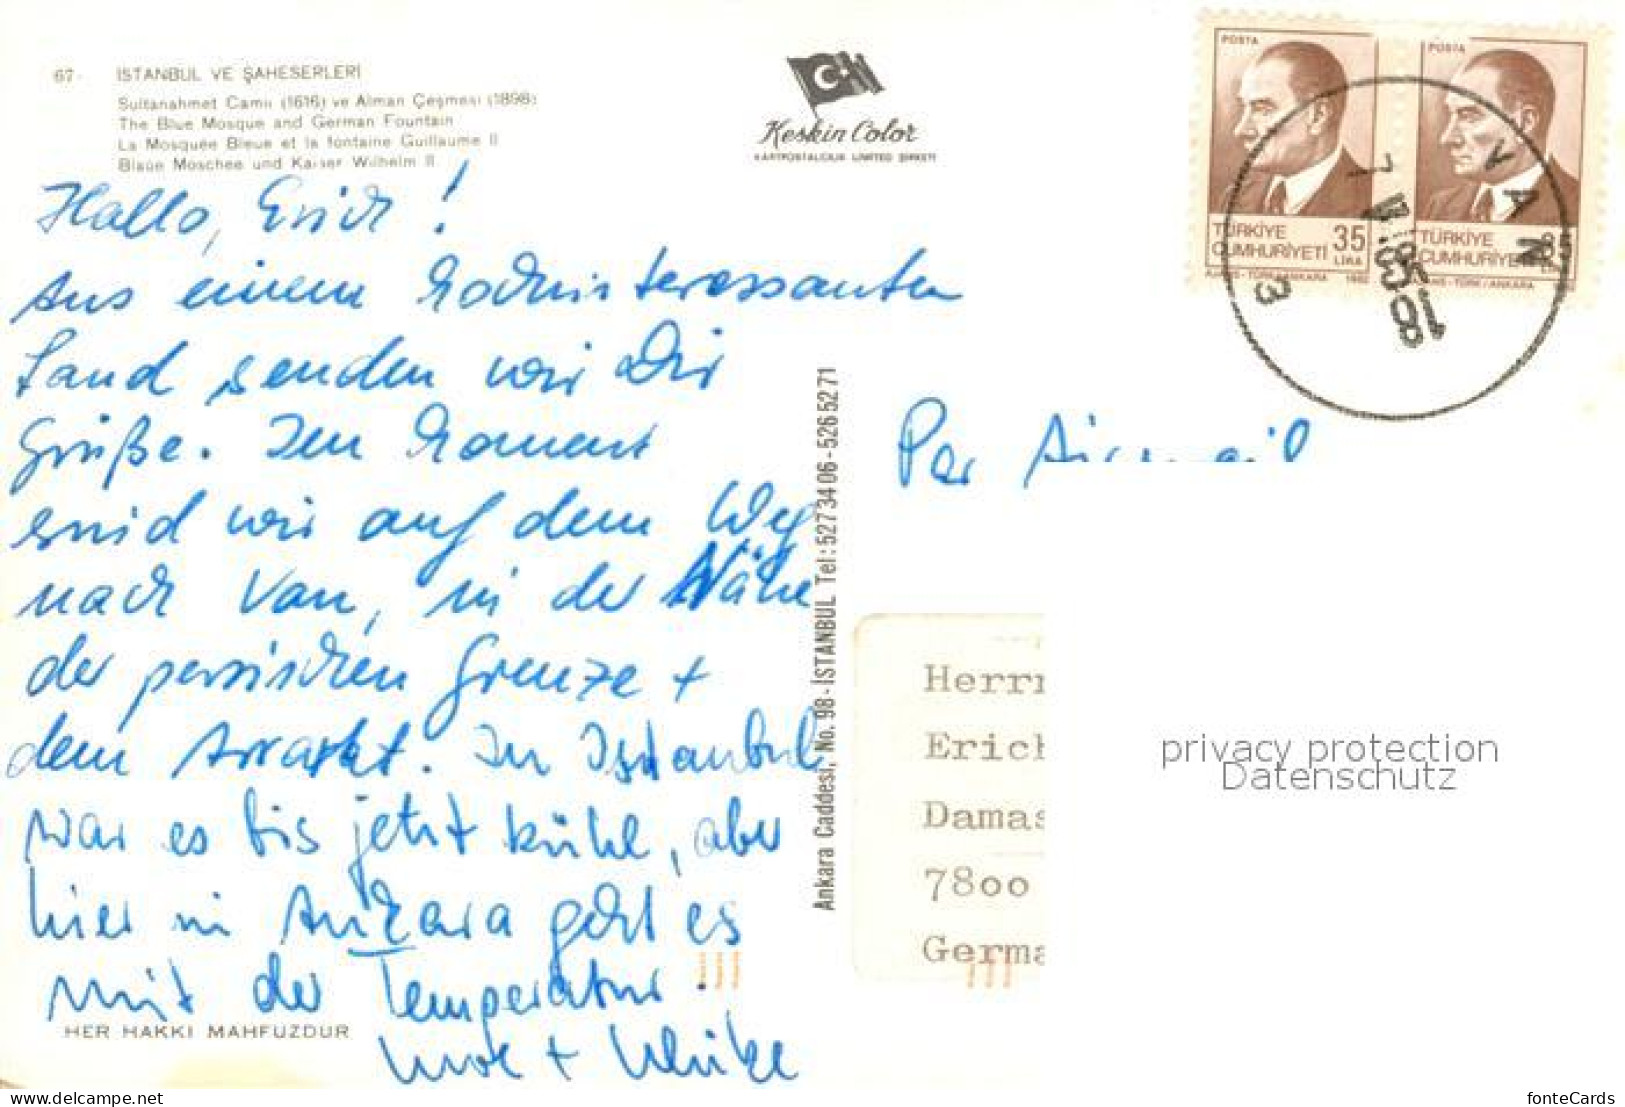 67 - İSTANBUL VE ŞAHESERLERİ
Sultanahmet Camii (1616) ve Alman Çeşmesi (1898)
The Blue Mosque and German Fountain
La Mosquée Bleue et la fontaine Guillaume II
Blaue Moschee und Kaiser Wilhelm II
Keskin Color
KARTPOSTALCILIK LIMITED ŞİRKETİ
POSTA
TÜRKİYE
CUMHURİYETİ 35
LİRA
AJANS-TÜRK/ANKARA 1982
POSTA
TÜRKİYE
CUMHURİYETİ
AJANS-TÜRK/ANKARA
VAN
18
3
Hallo, Erich!
Aus einem hochinteressanten
Land senden wir Dir
Grüße. Im Moment
sind wir auf dem Weg
nach Van, in der Nähe
der persischen Grenze +
dem Ararat. In Istanbul
war es bis jetzt kühl, aber
hier in Ankara geht es
mit der Temperatur.
+ Ulrike
HER HAKKI MAHFUZDUR
Ankara Caddesi, No. 98 - İSTANBUL Tel: 527 34 06 - 526 52 71
Per Airmail
Herrn
Erich
Damas
7800
Germa
privacy protection
Datenschutz
www.ansichtskarten-center.de
fonteCards